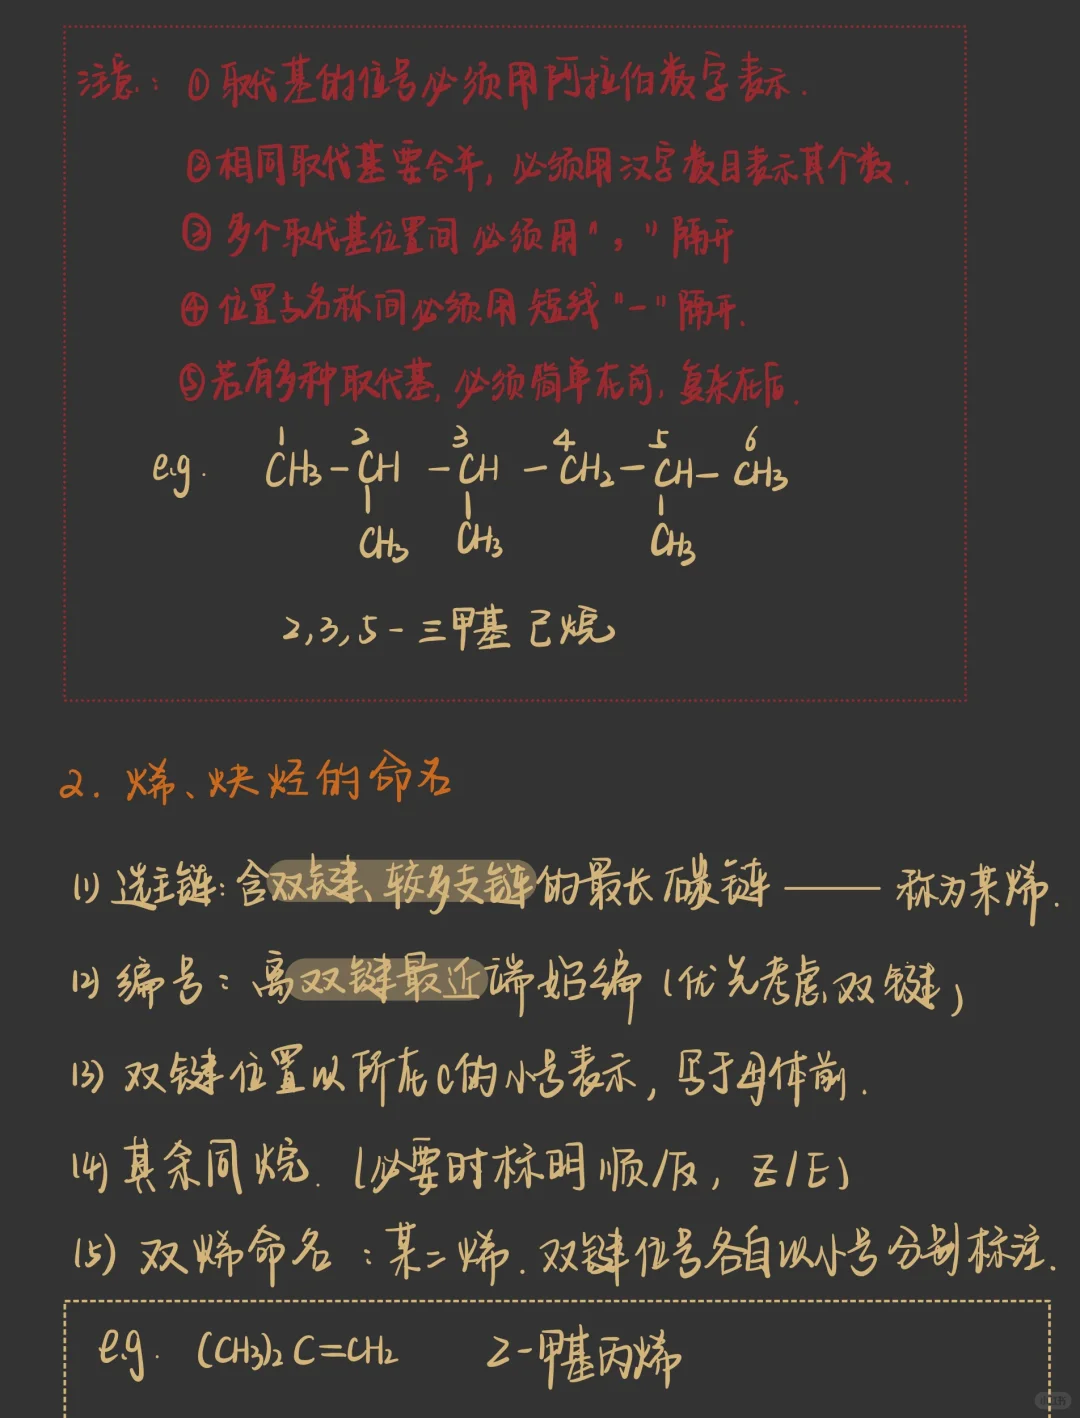 注意: ①取代基的位号必须用阿拉伯数字表示.
②相同取代基要合并, 必须用汉字数目表示其个数.
③多个取代基位置间必须用","隔开
④位置与名称间必须用短线"-"隔开.
⑤若有多种取代基, 必须简单在前, 复杂在后.
1 2 3 4 5 6
e.g. CH3-CH-CH-CH2-CH-CH3
CH3 CH3 CH3
2,3,5-三甲基己烷
2. 烯、炔烃的命名
(1) 选主链: 含双键、较多支链的最长碳链 —— 称为某烯.
(2) 编号: 离双键最近端始编 (优先考虑双键)
(3) 双键位置以所在C的小号表示, 写于母体前.
(4) 其余同烷. (必要时标明顺/反, Z/E)
(5) 双烯命名: 某二烯. 双键位号各自以小号分别标注.
e.g. (CH3)2C=CH2 2-甲基丙烯